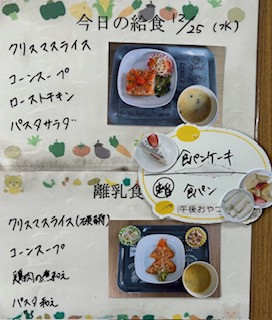 今日の給食 12/25 (水)
クリスマスライス
コーンスープ
ローストチキン
パスタサラダ
食パンケーキ
食パン
午後おやつ
離乳食
クリスマスライス
コーンスープ
鶏肉の煮和え
パスタ和え